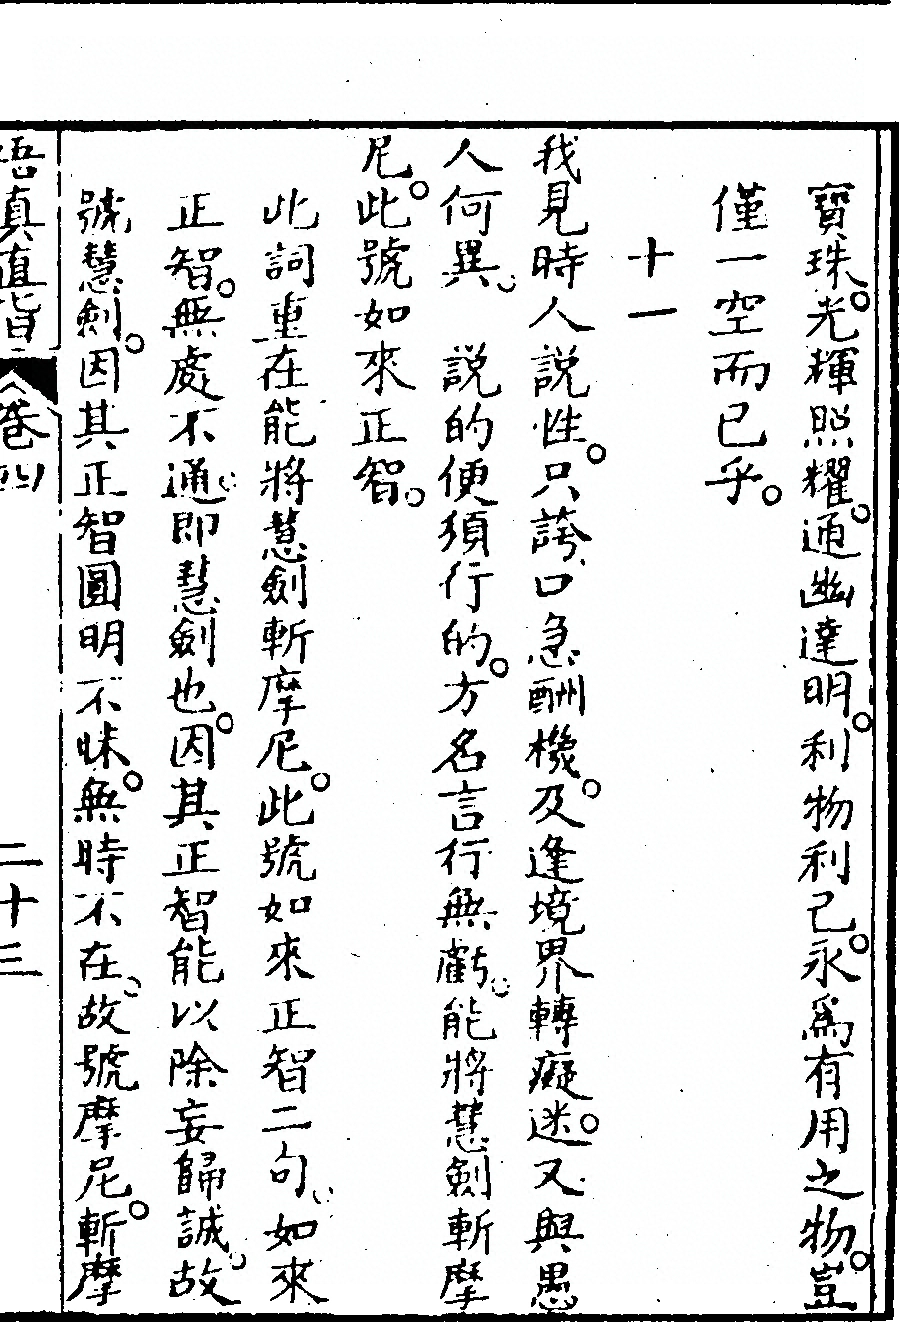 寶珠。光輝照耀。通幽達明。利物利己。永爲有用之物。豈
僅一空而已乎。
十一
我見時人說性。只誇口急酬機。及逢境界轉癡迷。又與愚
人何異。　說的便須行的。方名言行無虧。能將慧劍斬摩
尼。此號如來正智。
此詞重在能將慧劍斬摩尼。此號如來正智二句。如來
正智。無處不通。即慧劍也。因其正智能以除妄歸誠。故
號慧劍。因其正智圓明不昧。無時不在。故號摩尼。斬摩
悟真直指　卷四　二十三